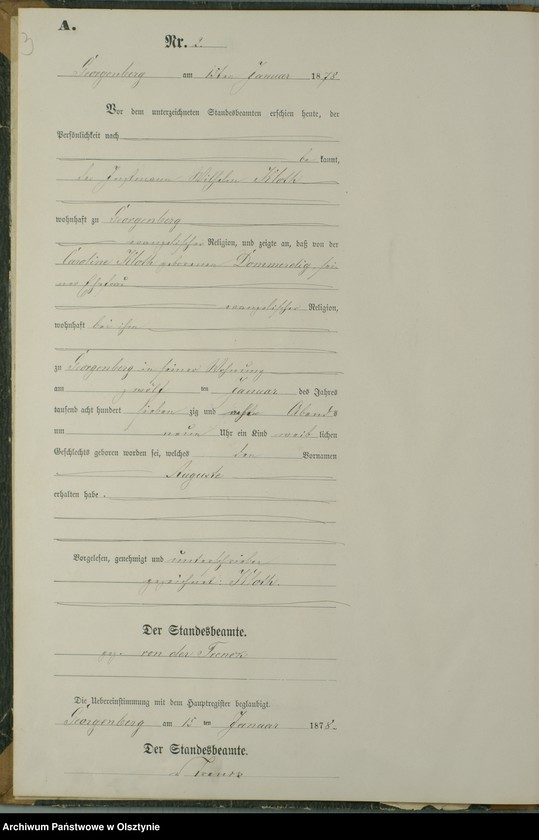 3
A.
Nr. 2.
Georgenberg am 15ten Januar 1878
Vor dem unterzeichneten Standesbeamten erschien heute, der
Persönlichkeit nach
be kannt,
der Instmann Wilhelm Kloth
wohnhaft zu Georgenberg
evangelischer Religion, und zeigte an, daß von der
Caroline Kloth geborenen sei-
ner Ehefrau
evangelischer Religion,
wohnhaft bei ihm
zu Georgenberg in seiner Wohnung
am zwölf ten Januar des Jahres
tausend acht hundert sieben zig und acht Abends
um neun Uhr ein Kind weib lichen
Geschlechts geboren worden sei, welches den Vornamen
Auguste
erhalten habe.
Vorgelesen, genehmigt und unterschrieben
gezeichnet: Kloth.
Der Standesbeamte.
gez. von der Trenck
Die Uebereinstimmung mit dem Hauptregister beglaubigt.
Georgenberg am 15 ten Januar 1878.
Der Standesbeamte.
Trenck
Archiwum Państwowe w Olsztynie